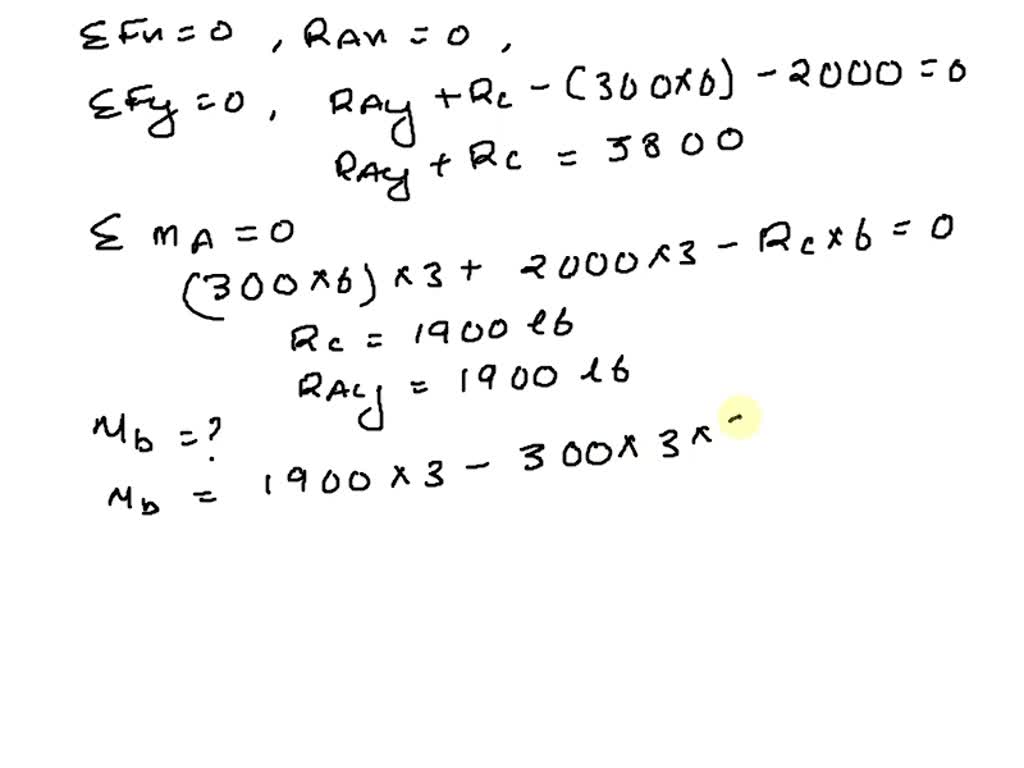 ΣFx = 0 , RAx = 0 ,
ΣFy = 0 , RAy + Rc - (300×6) - 2000 = 0
RAy + Rc = 3800
Σ MA = 0
(300×6) × 3 + 2000×3 - Rc×6 = 0
Rc = 1900 lb
RAy = 1900 lb
Mb = ?
Mb = 1900 × 3 - 300 × 3 × -